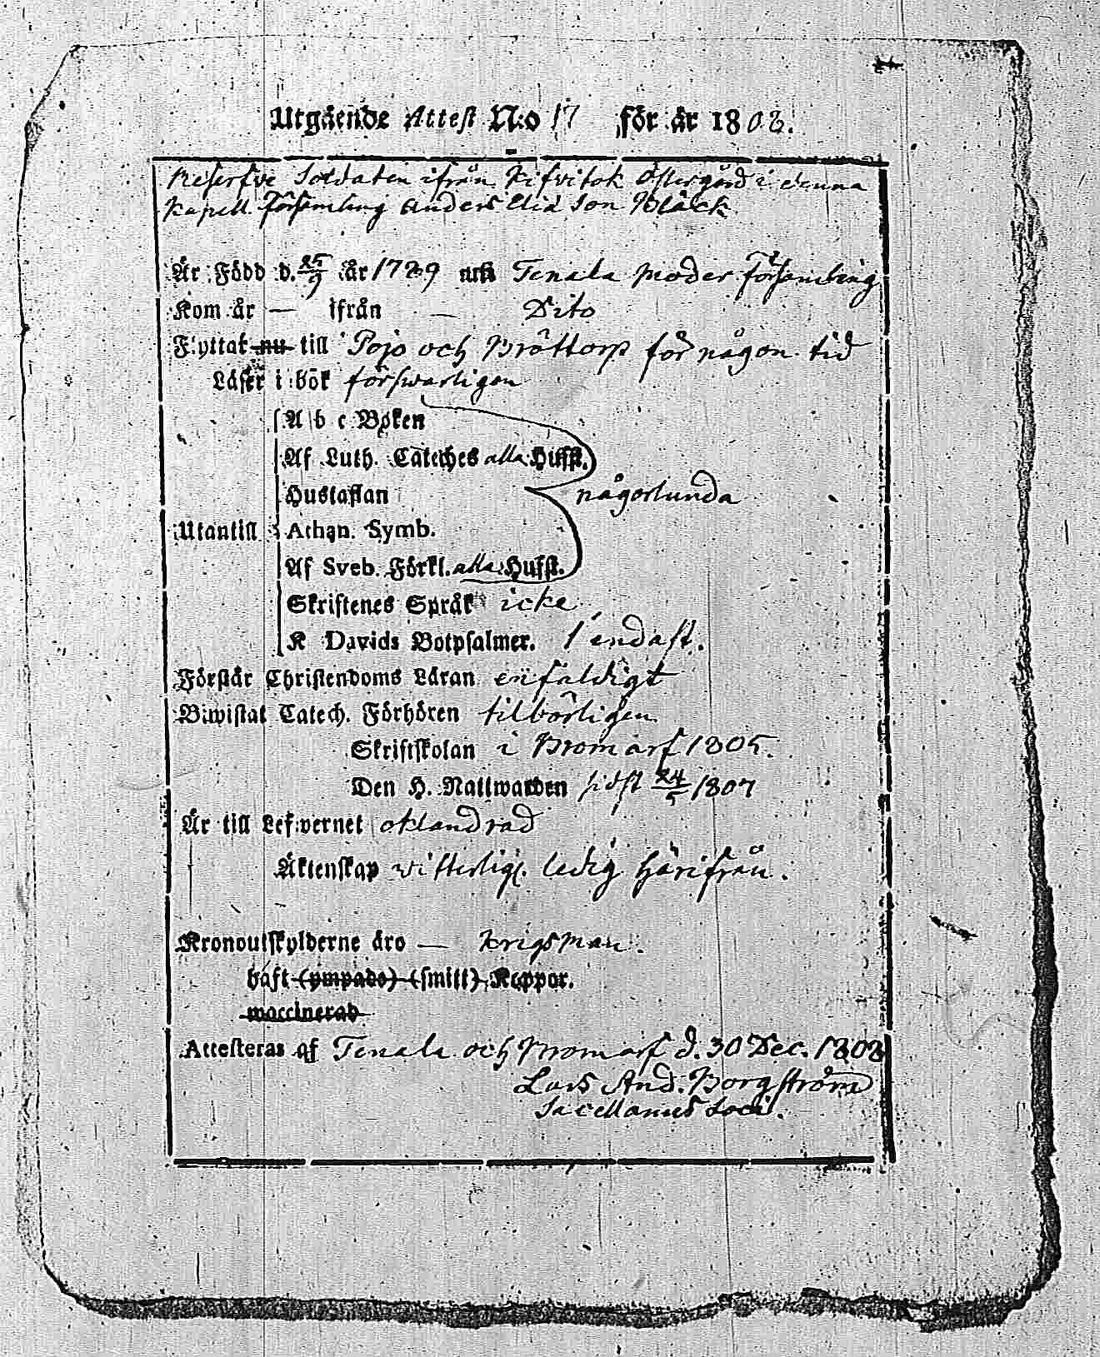 Utgående Attest N:o 17 för år 1808.
Reserfve Soldaten ifrån Kifvitok Östergård i denna
Kapell Församling Anders Elia Son Kläck
Är Född d. 25/9 år 1789 uti Tenala Moder Församling
Kom år — ifrån — Dito
Flyttat nu till Pojo och Bröttorp för någon tid
Läser i bok försvarligen
A b c Boken
Af Luth. Cateches alla Hufst.
Hustaflan någorlunda
Utantill Athan. Symb.
Af Sveb. Förkl. alla Hufst.
Skriftenes Språk icke
K Davids Botpsalmer. 1 endast.
Förstår Christendoms Läran enfaldigt
Biwistat Catech. Förhören tilbörligen
Skriftskolan i Bromarf 1805.
Den H. Nattwarden sidst 24/5 1807
Är till Lefvernet oklandrad
Äktenskap vitterligt. ledig härifrån.
Kronoutskylderne äro — Krigsman.
haft (ympade) (smitt) Koppor.
waccinerad
Attesteras af Tenala och Bromarf d. 30 Dec. 1808
Lars And. Borgström
Sacellanus Loci.